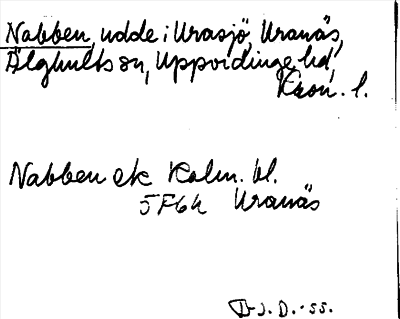 Nabben, udde i Urasjö, Uranäs,
Älghults sn, Uppvidinge hd,
Kron. l.
Nabben ek Kalm. bl.
5F6h Uranäs
D.-ss.